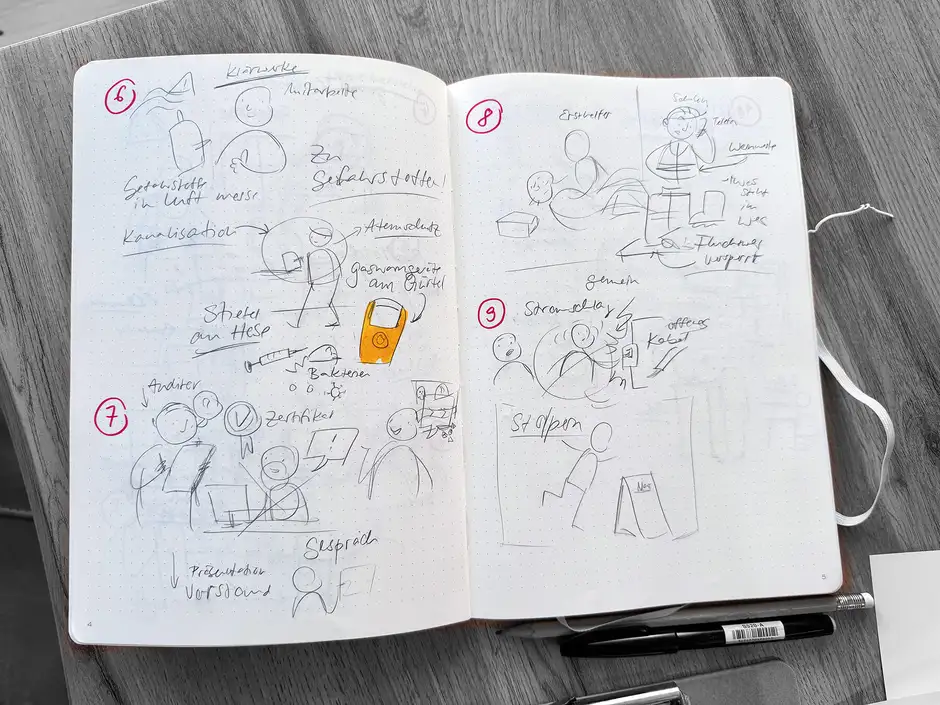 6
Klärwerke
Mitarbeite
Gefahrstoffe
in Luft messe
Zu
Gefahrstoffen!
Kanalisation
Atemschutz
Gaswarngerät
am Gürtel
Bakterien
7
Auditor
Zertifikat
Gespräch
Präsentation
Vorstand
4
8
Ersthelfer
Telefon
Warnweste
steht
im
Weg
Fluchtweg
versperrt
gemein
9
Stromschlag
offenes
Kabel
Stolpern
5